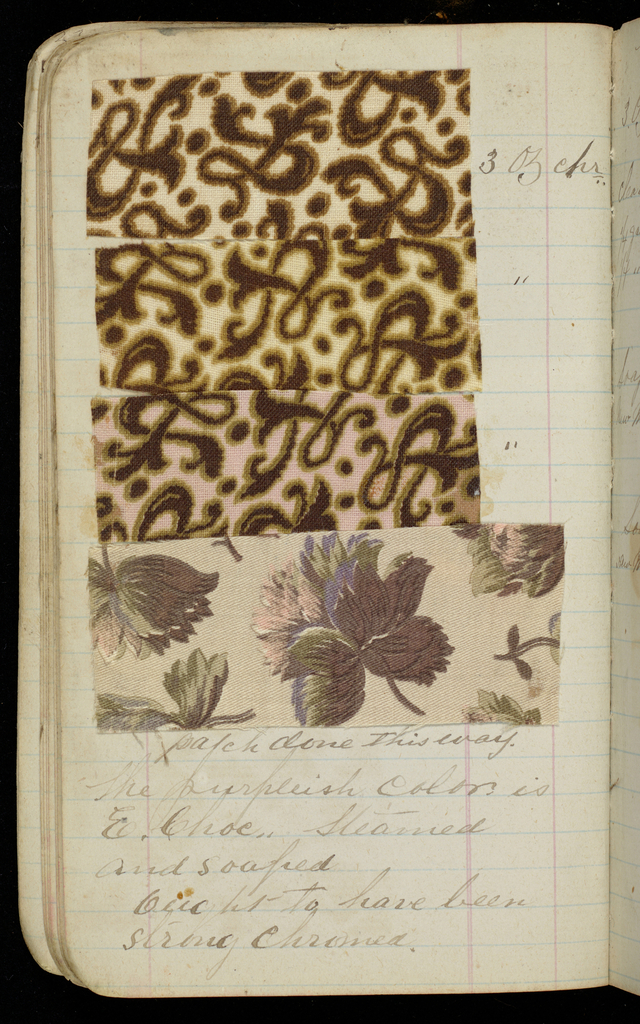 3 Oz chr.
"
"
patch done this way.
The purpleish color is
E. Choc.. Steamed
and soaped
Ought to have been
strong chromed.